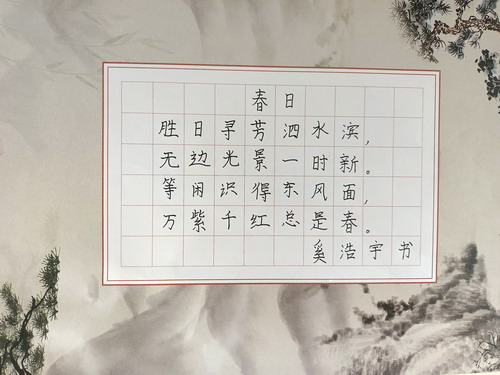 春日
胜日寻芳泗水滨,
无边光景一时新。
等闲识得东风面,
万紫千红总是春。
奚浩宇书